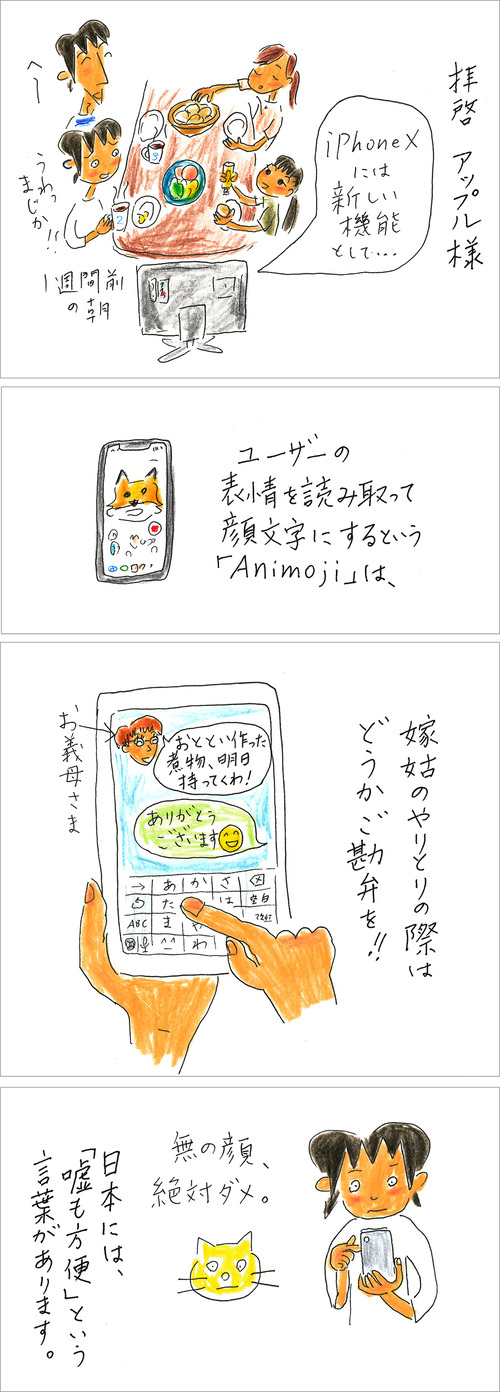 拝啓 アップル様
iPhoneX
には
新しい
機能
として…
へー
うわっ
まじか!!
1週間前
の朝
2
3
ユーザーの
表情を読み取って
顔文字にするという
「Animoji」は、
嫁姑のやりとりの際は
どうかご勘弁を!!
お義母さま
おととい作った
煮物、明日
持ってくわ!
ありがとう
ございます
→ あ か さ
た な は 空白
ABC ま や
^^ わ
無の顔、
絶対ダメ。
日本には、
「嘘も方便」という
言葉があります。